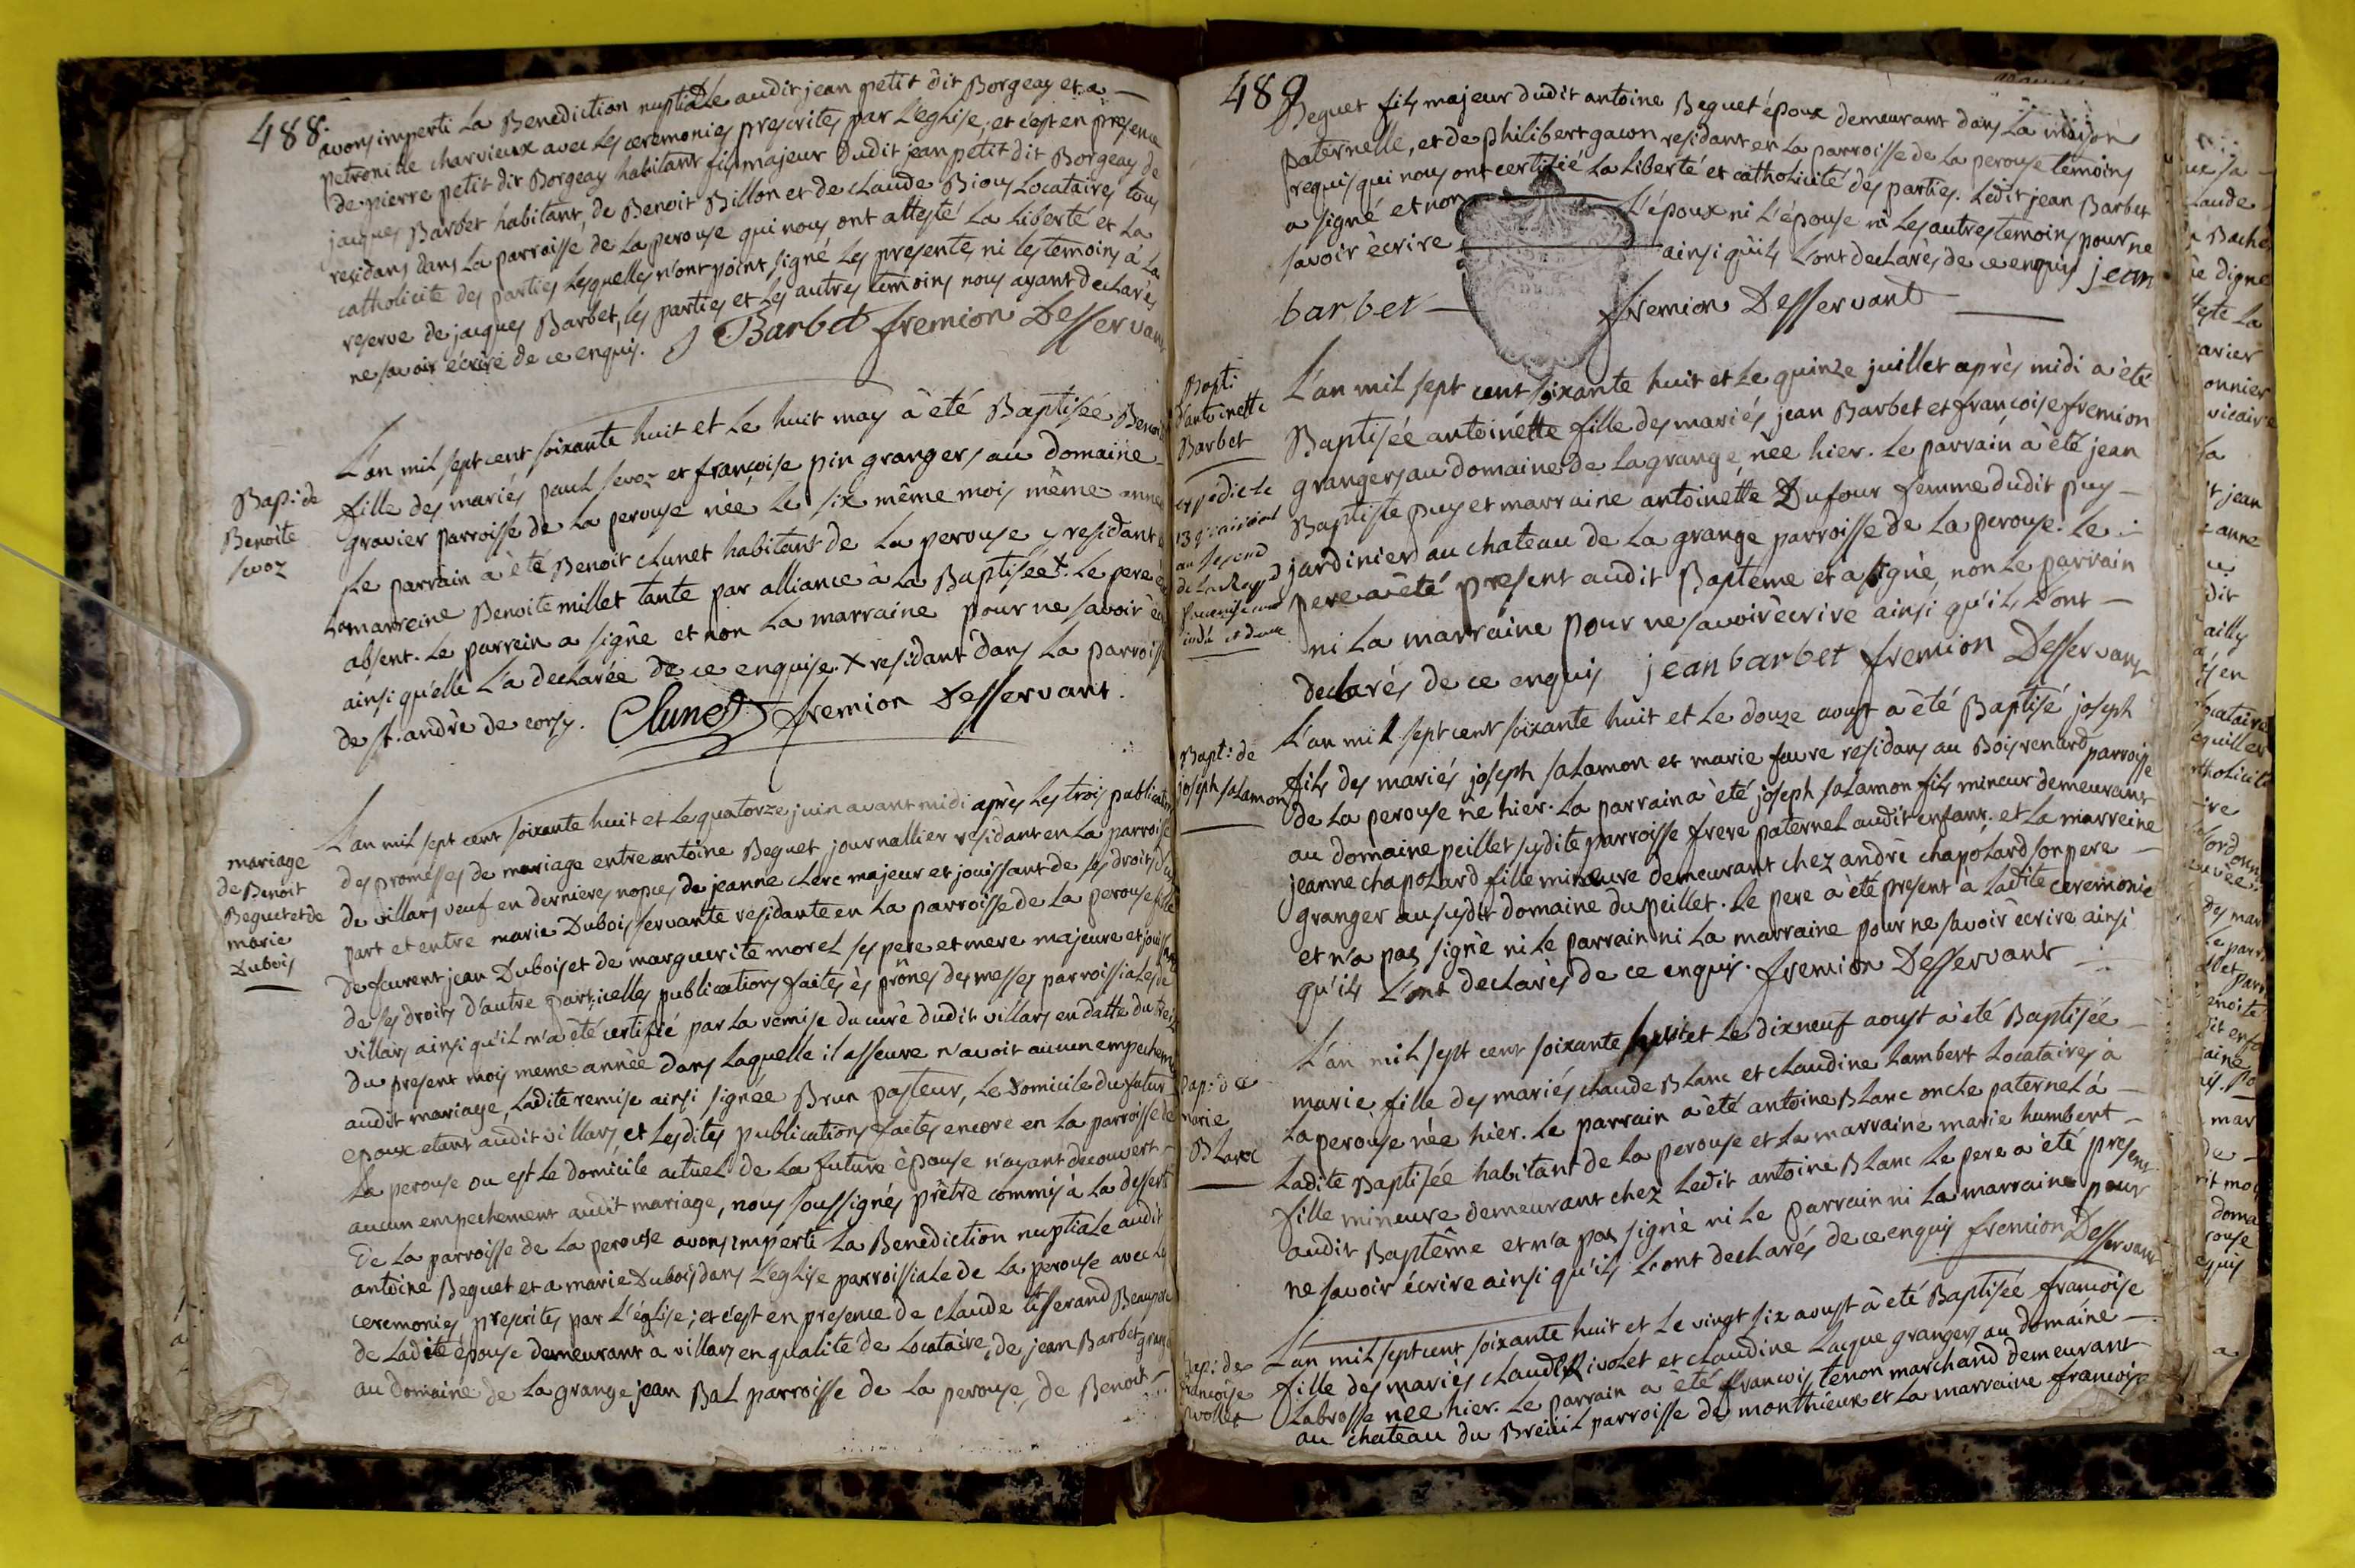 488.
avons imperti la Benediction nuptiale audit jean petit dit Borgeay et a
petronille charvieux avec les ceremonies prescrites par l'eglise, et c'est en presence
de pierre petit dit Borgeay habitant fils majeur dudit jean petit dit Borgeay de
jacques Barbet habitant, de Benoit Billon et de claude Bious locataires tous
residans dans la parroisse de la perouse qui nous ont attesté la liberté et la
catholicité des parties lesquelles n'ont point signé les presentes ni les temoins à la
reserve de jacques Barbet, les parties et les autres temoins nous ayant declarés
ne savoir écrire de ce enquis. J Barbet fremion Desservant
Bap: de
Benoite
sevoz
L'an mil sept cent soixante huit et le huit may à été Baptisée
fille des mariés paul sevoz et françoise pin grangers au domaine
gravier parroisse de la perouse née le six même mois même
Le parrain à été Benoit clunet habitant de la perouse y residant
la marreine Benoite millet tante par alliance à la Baptisée X. Le pere
absent. Le parrein a signé et non la marraine pour ne savoir
ainsi qu'elle l'a declarée de ce enquise. X residant dans la parroisse
de st. andré de corsy. Clunet fremion Desservant.
mariage
de Benoit
Beguet et de
marie
Dubois
L'an mil sept cent soixante huit et le quatorze juin avant midi après les trois publications
des promesses de mariage entre antoine Beguet journallier residant en la parroisse
de villars veuf en dernieres nopces de jeanne clerc majeur et jouissant de ses droits
part et entre marie Dubois servante residante en la parroisse de la perouse fille
de laurent jean Dubois et de marguerite morel ses pere et mere majeure et
de ses droits d'autre part, icelles publications faites ès prônes des messes parroissiales de
villars ainsi qu'il m'a été certifié par la remise du curé dudit villars en datte du
du present mois meme année dans laquelle il asseure n'avoit aucun
audit mariage, ladite remise ainsi signée Brun pasteur, le domicile du futur
epoux etant audit villars, et lesdites publications faites encore en la parroisse de
la perouse ou est le domicile actuel de la future èpouse n'ayant decouvert
aucun empechement audit mariage, nous soussignés prêtre commis à la desserte
de la parroisse de la perouse avons imperti la Benediction nuptiale audit
antoine Beguet et a marie Dubois dans l'eglise parroissiale de la perouse avec les
ceremonies prescrites par l'église; et c'est en presence de claude tisserand Beaupere
de ladite épouse demeurant à villars en qualité de locataire, de jean Barbet
au domaine de la grange jean Bal parroisse de la perouse, de Benoit
489
Beguet fils majeur dudit antoine Beguet époux demeurant dans la maison
paternelle, et de philibert gacon residant en la parroisse de la perouse temoins
requis qui nous ont certifié la liberté et catholicité des parties. Ledit jean Barbet
a signé et non l'époux ni l'épouse ni les autres temoins pour ne
savoir écrire ainsi qu'ils l'ont declarés de ce enquis jean
barbet fremion Desservant
Bapti
d'antoinette
Barbet
L'an mil sept cent soixante huit et le quinze juillet après midi a été
Baptisée antoinette fille des mariés jean Barbet et francoise fremion
grangers au domaine de la grange née hier. Le parrain à été jean
Baptiste puy et marraine antoinette Dufour femme dudit puy
jardinier au chateau de la grange parroisse de la perouse. Le
pere a été present audit Baptême et a signé, non le parrain
ni la marraine pour ne savoir écrire ainsi qu'ils l'ont
declarés de ce enquis jean barbet fremion Desservant
Bapt: de
joseph salamon
L'an mil sept cent soixante huit et le douze aoust a été Baptisé joseph
fils des mariés joseph salamon et marie favre residans au Bois renard parroisse
de la perouse né hier. La parrain a été joseph salamon fils mineur demeurant
au domaine peillet susdite parroisse frere paternel audit enfant. et la marreine
jeanne chapolard fille mineure demeurant chez andré chapolard son pere
granger au susdit domaine du peillet. Le pere a été present à ladite ceremonie
et n'a pas signé ni le parrain ni la marraine pour ne savoir écrire ainsi
qu'ils l'ont declarés de ce enquis. fremion Desservant
Bap: de
marie
Blanc
L'an mil sept cent soixante huit et le dixneuf aoust a été Baptisée
marie fille des mariés claude Blanc et claudine Lambert locataires à
la perouse née hier. Le parrain a été antoine Blanc oncle paternel à
ladite Baptisée habitant de la perouse et la marraine marie humbert
fille mineure demeurant chez ledit antoine Blanc Le pere a été present
audit Baptême et n'a pas signé ni le parrain ni la marraine pour
ne savoir écrire ainsi qu'ils l'ont declarés de ce enquis fremion Desservant
Bap: de
francoise
L'an mil sept cent soixante huit et le vingt six aoust à été Baptisée francoise
fille des mariés claude Rivolet et claudine Lacque grangers au domaine
Labrosse née hier. Le parrain a été francois tenon marchand demeurant
au chateau du Breüil parroisse de monthieux et la marraine francoise